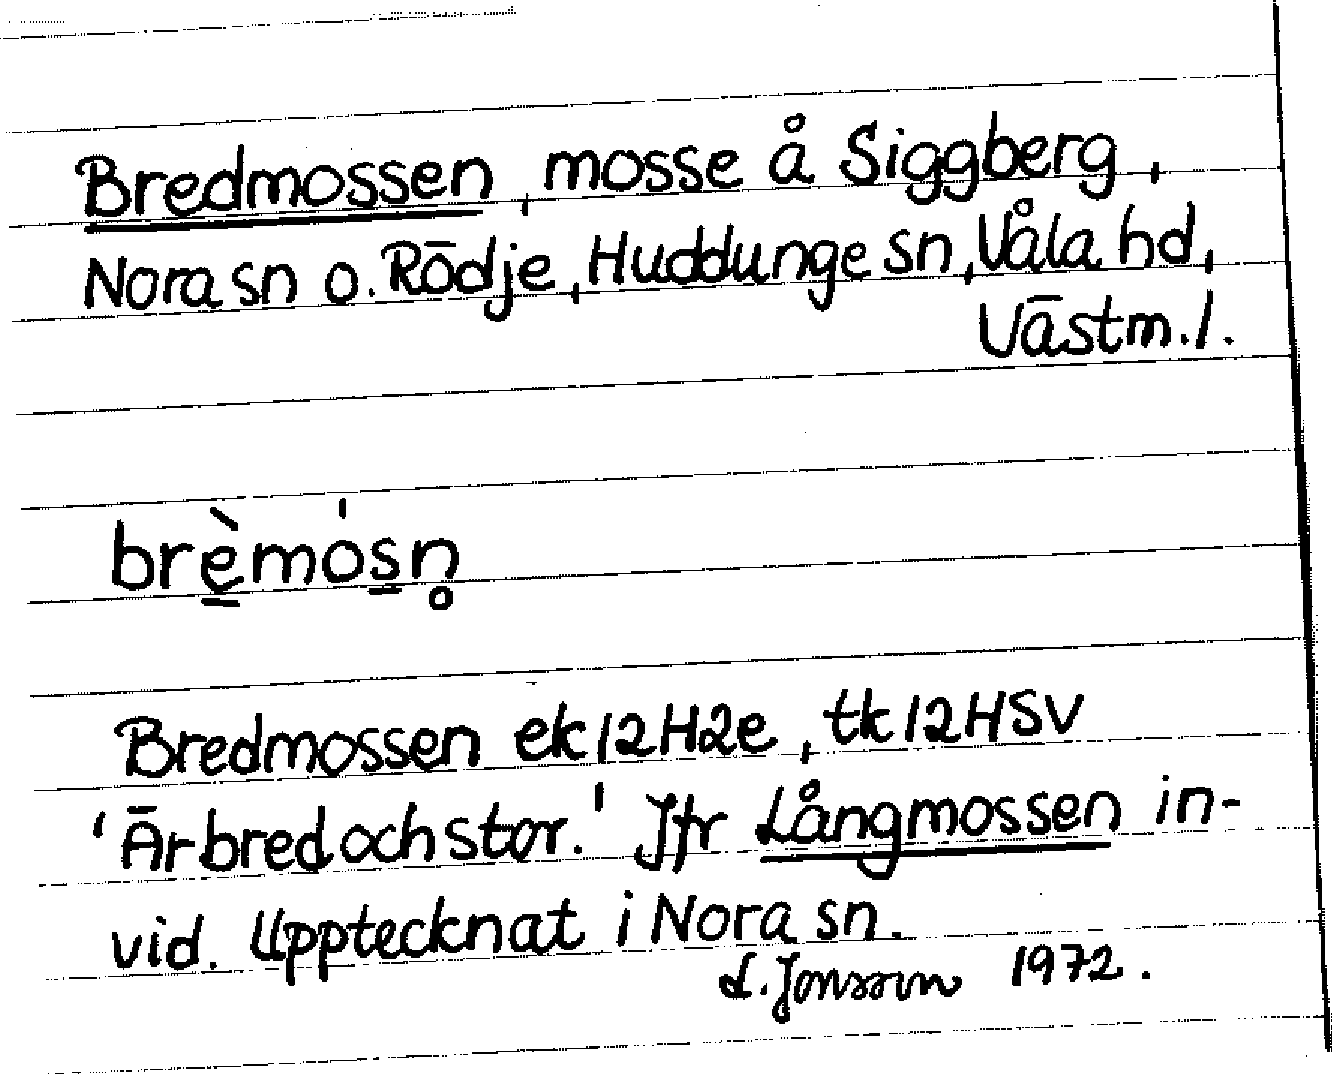 Bredmossen, mosse å Siggberg,
Nora sn o. Rödje, Huddunge sn, Våla hd,
Västm.l.
brè̠mós̠n̥
Bredmossen ek 12H2e, tk 12HSV
'Är bred och stor.' Jfr Långmossen in-
vid. Upptecknat i Nora sn.
L. Jonsson 1972.